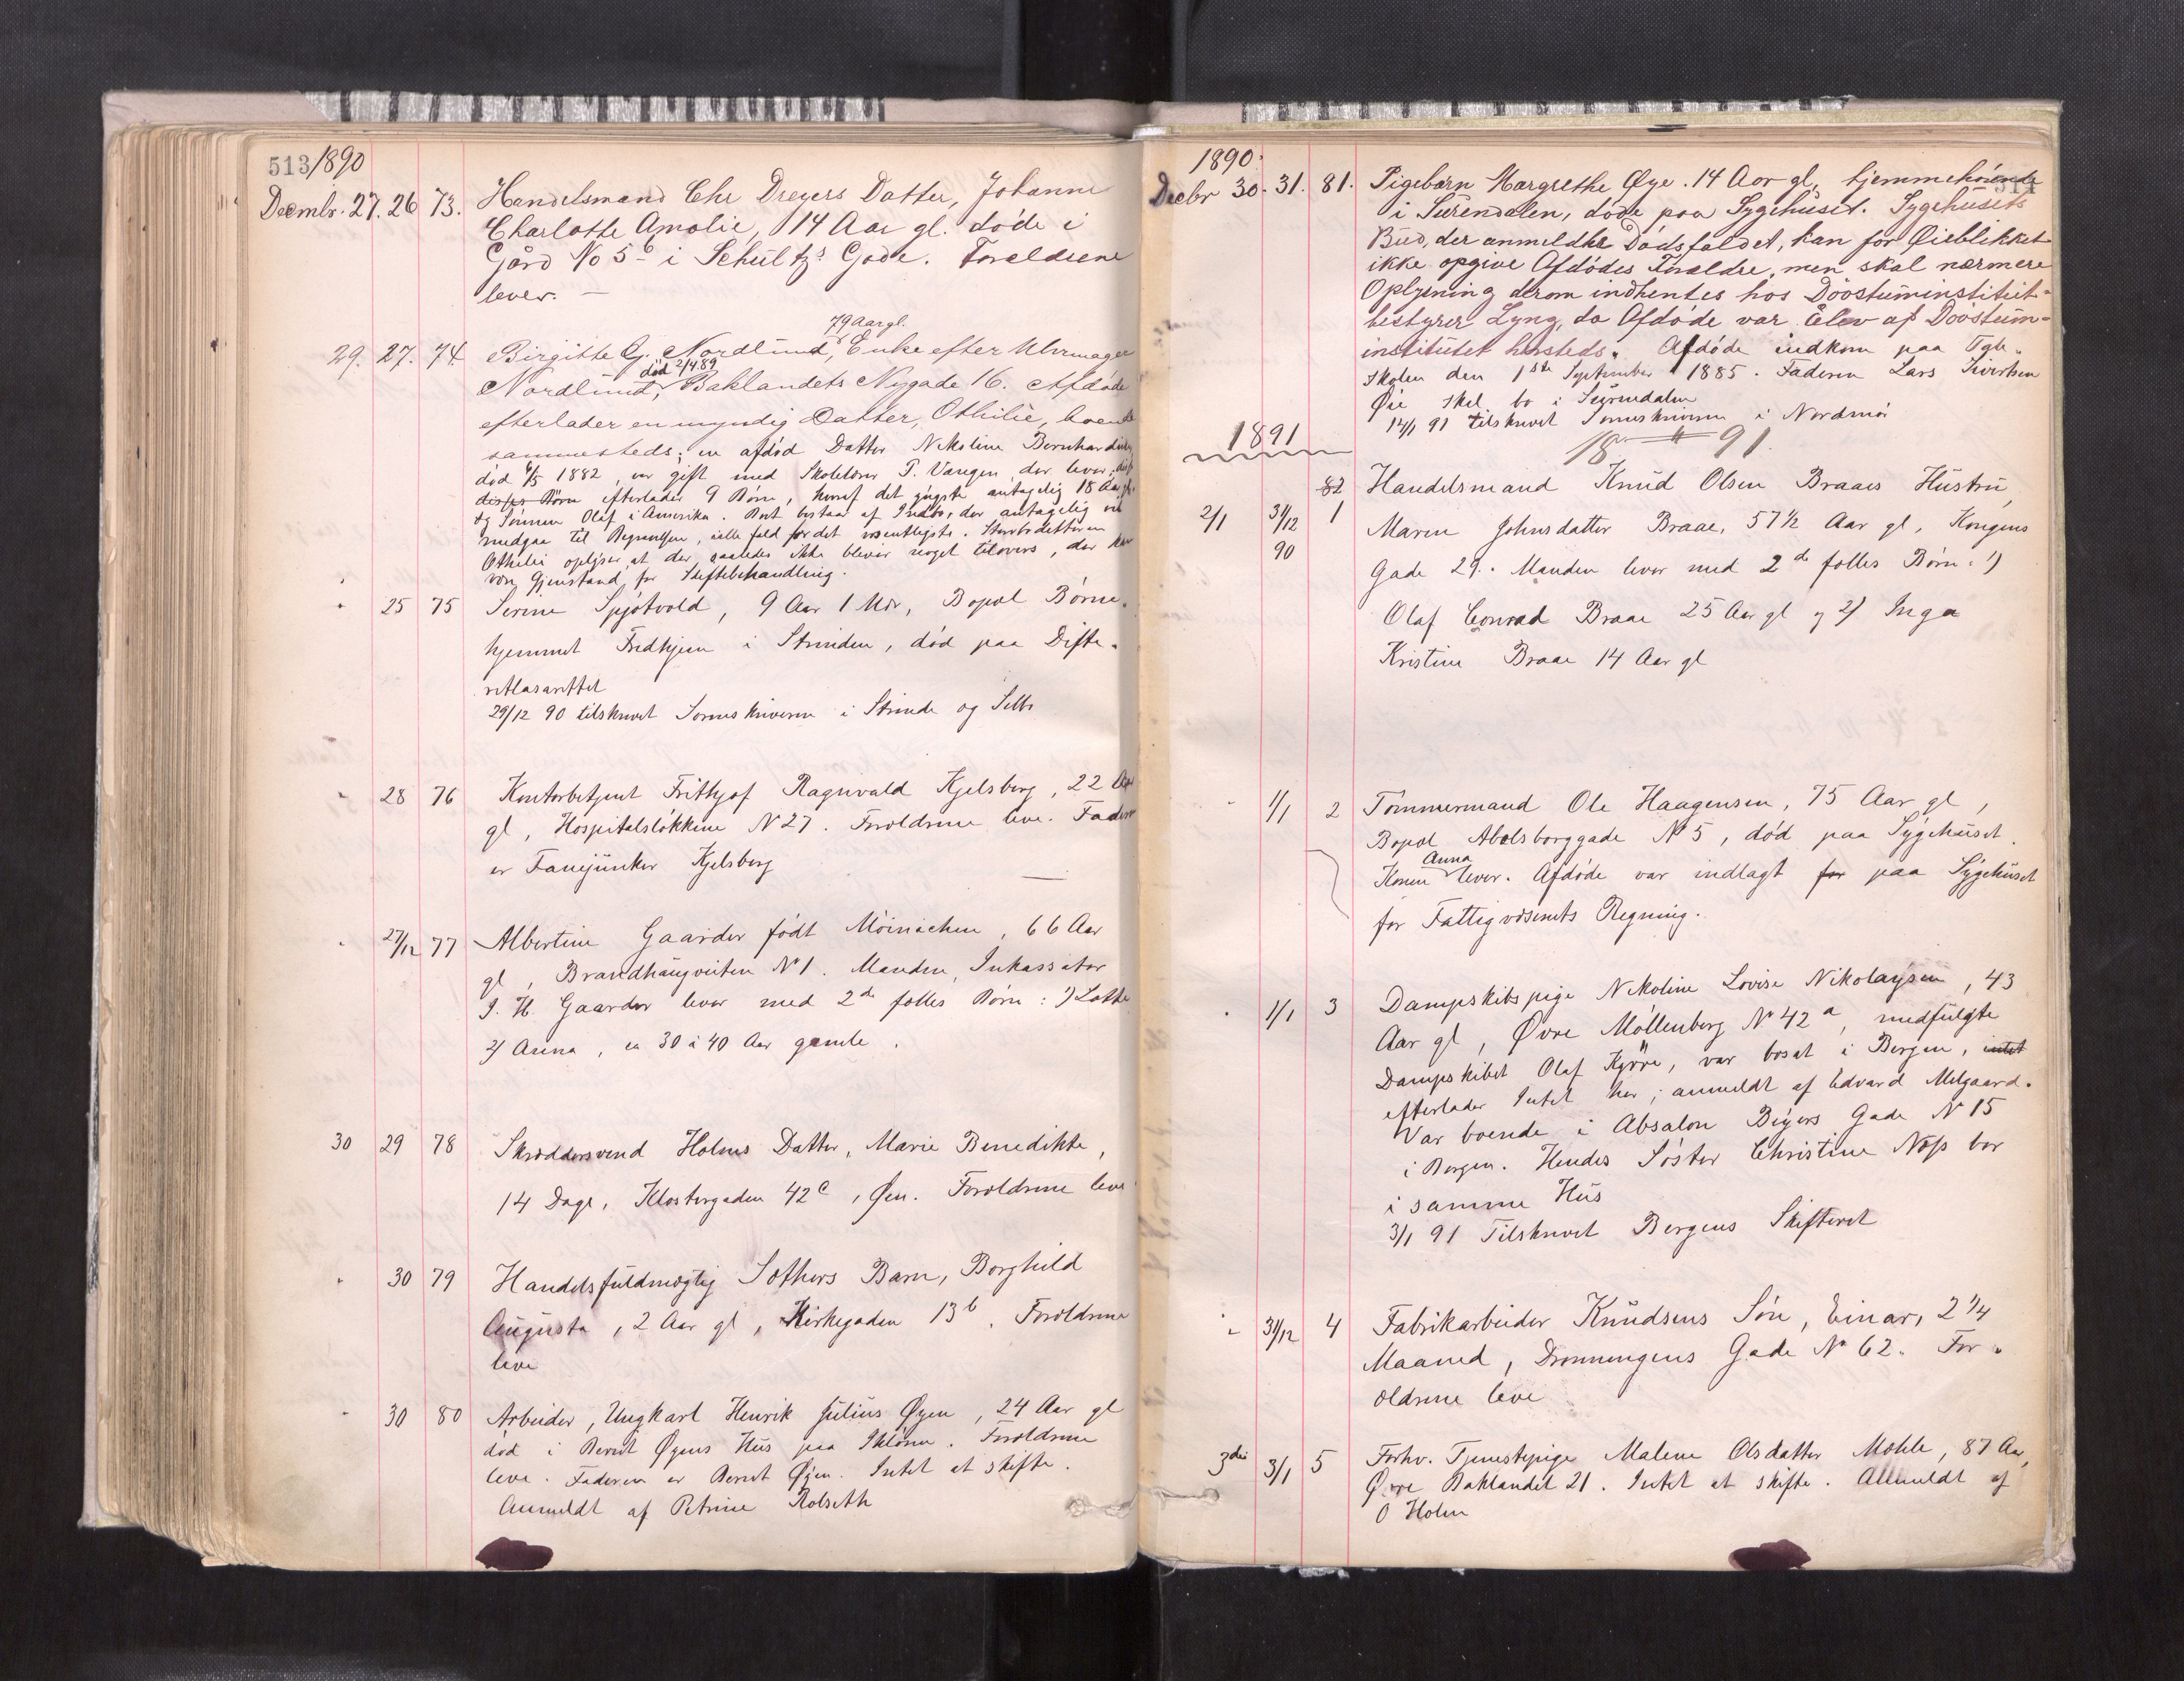 513
1890
Decembr. 27. 26 73. Handelsmand Chr Dreyers Datter, Johanne
Charlotte Amalie, 14 Aar gl. døde i
Gård No 5 i Schultz's Gade. Forældrene
lever. —
79 Aar gl.
29. 27. 74 Birgitte G. Nordlund, Enke efter Uhrmager
død 2/4 89
Nordlund, Baklandets Nygade 16. Afdøde
efterlader en myndig Datter, Othilie, boende
sammesteds; en afdød Datter Nikoline Bernhardine
død 6/5 1882, var gift med Skolelærer T. Vangen der lever;
disses Børn efterlader 9 Børn, hvoraf det yngste antagelig 18 Aar gl.
og Sønnen Olaf i Amerika. Boet bestaar af Indbo, der antagelig vil
medgaa til Begravelsen, ialle fald for det væsentligste. Stervbodatteren
Othilie oplyser, at der saaledes ikke bliver noget tilovers, der kan
være Gjenstand for Skiftebehandling.
" 25 75 Serine Spjøtvold, 9 Aar 1 Mdr, Bopæl Børne-
hjemmet Fredhjem i Strinden, død paa Difte-
ritlasarettet
29/12 90 tilskrevet Sorenskriveren i Strinde og Selbu
" 28 76 Kontorbetjent Frithjof Ragnvald Kjelsberg, 22 Aar
gl, Hospitalsløkkene N 27. Forældrene leve. Faderen
er Fanejunker Kjelsberg
" 27/12 77 Albertine Gaarder født Möinichen, 66 Aar
gl, Brandhaugveiten N 1. Manden, Inkassator
J. H. Gaarder lever med 2de fælles Børn: 1) Lotte
2) Anna, ca 30 à 40 Aar gamle.
30 29 78 Skræddersvend Holms Datter, Marie Benedikte,
14 Dage, Klostergaden 42c, Øen. Forældrene leve
" 30 79 Handelsfuldmægtig Sothers Barn, Borghild
Augusta, 2 Aar gl, Kirkegaden 13b. Forældrene
leve
" 30 80 Arbeider, Ungkarl Henrik Julius Øyen, 24 Aar gl
død i Bernt Øyens Hus paa Ihlen. Forældrene
leve. Faderen er Bernt Øjen. Intet at skifte.
Anmeldt af Petrine Rolseth
514
1890.
Decbr 30. 31. 81. Pigebarn Margrethe Øye. 14 Aar gl, hjemmehørende
i Surendalen, døde paa Sygehuset. Sygehusets
Bud, der anmeldte Dødsfaldet, kan for Øieblikket
ikke opgive Afdødes Forældre, men skal nærmere
Oplysning derom indhentes hos Døvstuminstitut-
bestyrer Lyng, da Afdøde var Elev af Døvstum-
institutet hersteds. Afdøde indkom paa
skolen den 1ste September 1885. Faderen Lars Sivertsen
Øie skal bo i Surendalen
14/1 91 tilskrevet Sorenskriveren i Nordmør
1891
18 " 91.
82 Handelsmand Knud Olsen Braaes Hustru
2/1 31/12 90 1 Maren Johnsdatter Braae, 57 1/2 Aar gl, Kongens
Gade 29. Manden lever med 2de fælles Børn: 1)
Olaf Conrad Braae 25 Aar gl og 2) Inga
Kristine Braae 14 Aar gl
" 1/1 2 Tømmermand Ole Haagensen, 75 Aar gl,
Bopæl Abelsborggade No 5, død paa Sygehuset.
Anna
Konen lever. Afdøde var indlagt for paa Sygehuset
for Fattigvæsenets Regning.
" 1/1 3 Dampskibspige Nikoline Lovise Nikolaysen, 43
Aar gl, Øvre Møllenberg No 42 a, medfulgte
Dampskibet Olaf Kyrre, var bosat i Bergen, intet
efterlader Intet her; anmeldt af Edvard Melgaard.
Var boende i Absalon Beyers Gade No 15
i Bergen. Hendes Søster Christine Næss bor
i samme Hus
3/1 91 Tilskrevet Bergens Skifteret
" 31/12 4 Fabrikarbeider Knudsens Søn, Einar, 2 1/4
Maaned, Dronningens Gade No 62. For-
ældrene leve
3die 3/1 5 Forhv. Tjenestepige Malene Olsdatter Mohle, 87 Aar,
Øvre Baklandet 21. Intet at skifte. Anmeldt af
O Holm